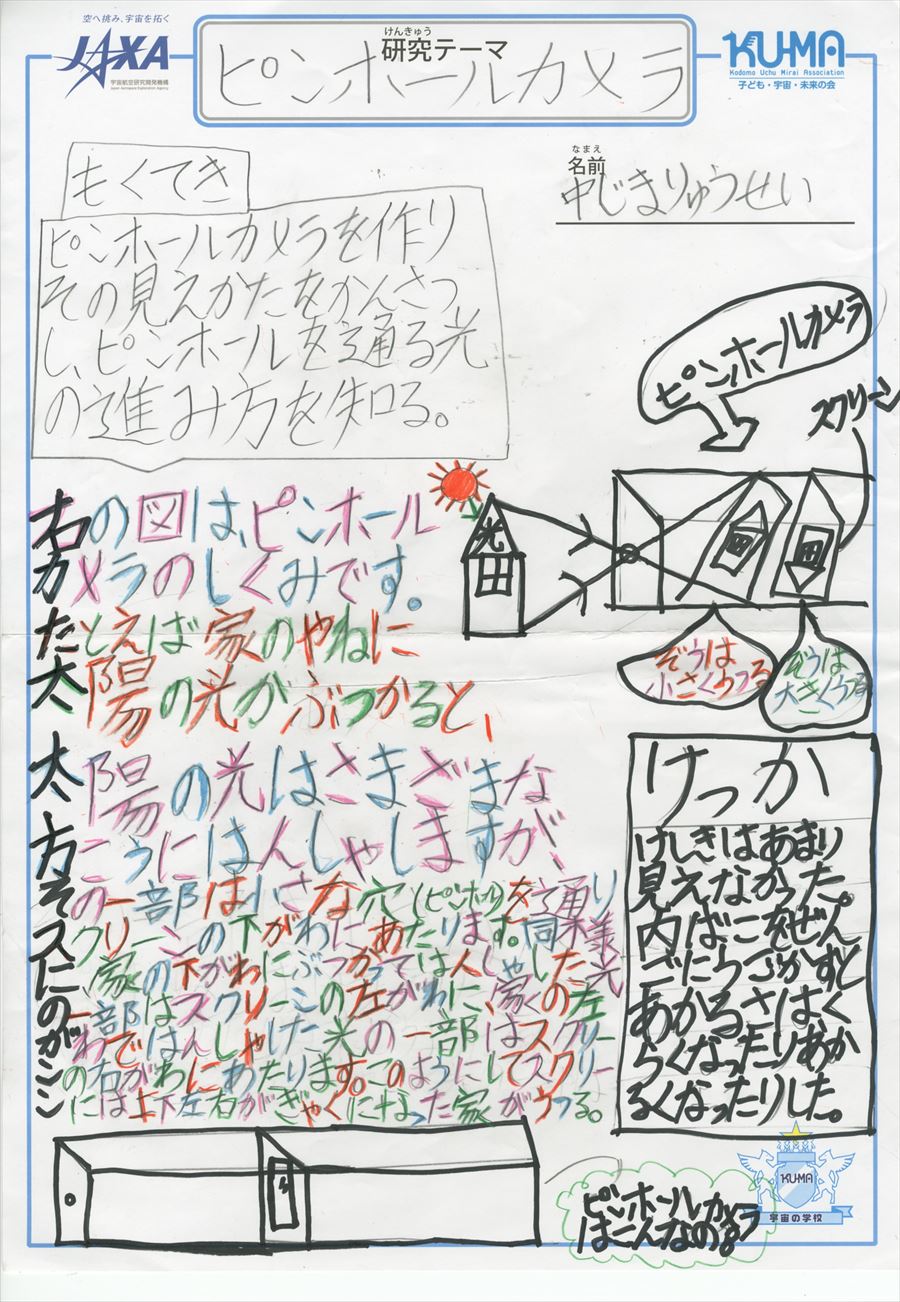 空へ挑み、宇宙を拓く
JAXA
宇宙航空研究開発機構
Japan Aerospace Exploration Agency
けんきゅう
研究テーマ
ピンホールカメラ
KU-MA
Kodomo Uchu Mirai Association
子ども・宇宙・未来の会
なまえ
名前
中じまりゅうせい
もくてき
ピンホールカメラを作り
その見えかたをかんさつ
し、ピンホールを通る光
の進み方を知る。
ピンホールカメラ
スクリーン
光
ぞうは
小さくうつる
ぞうは
大きくうつる
右の図は、ピンホール
カメラのしくみです。
たとえば家のやねに
太陽の光がぶつかると、
太陽の光はさまざまな
方こうにはんしゃしますが、
その一部は小さな穴(ピンホール)を通り
スクリーンの下がわにあたります。同様
に家の下がわにぶつかってはんしゃした光
の一部はスクリーンの左がわに、家の左
がわではんしゃした光の一部はスクリー
ンの右がわにあたります。このようにしてスクリー
ンには上下左右がぎゃくになった家がうつる。
けっか
けしきはあまり
見えなかった。
内ばこをぜん
ごにうごかすと
あかるさはく
らくなったりあか
るくなったりした。
ピンホールカメラ
はこんなの
KU-MA
宇宙の学校